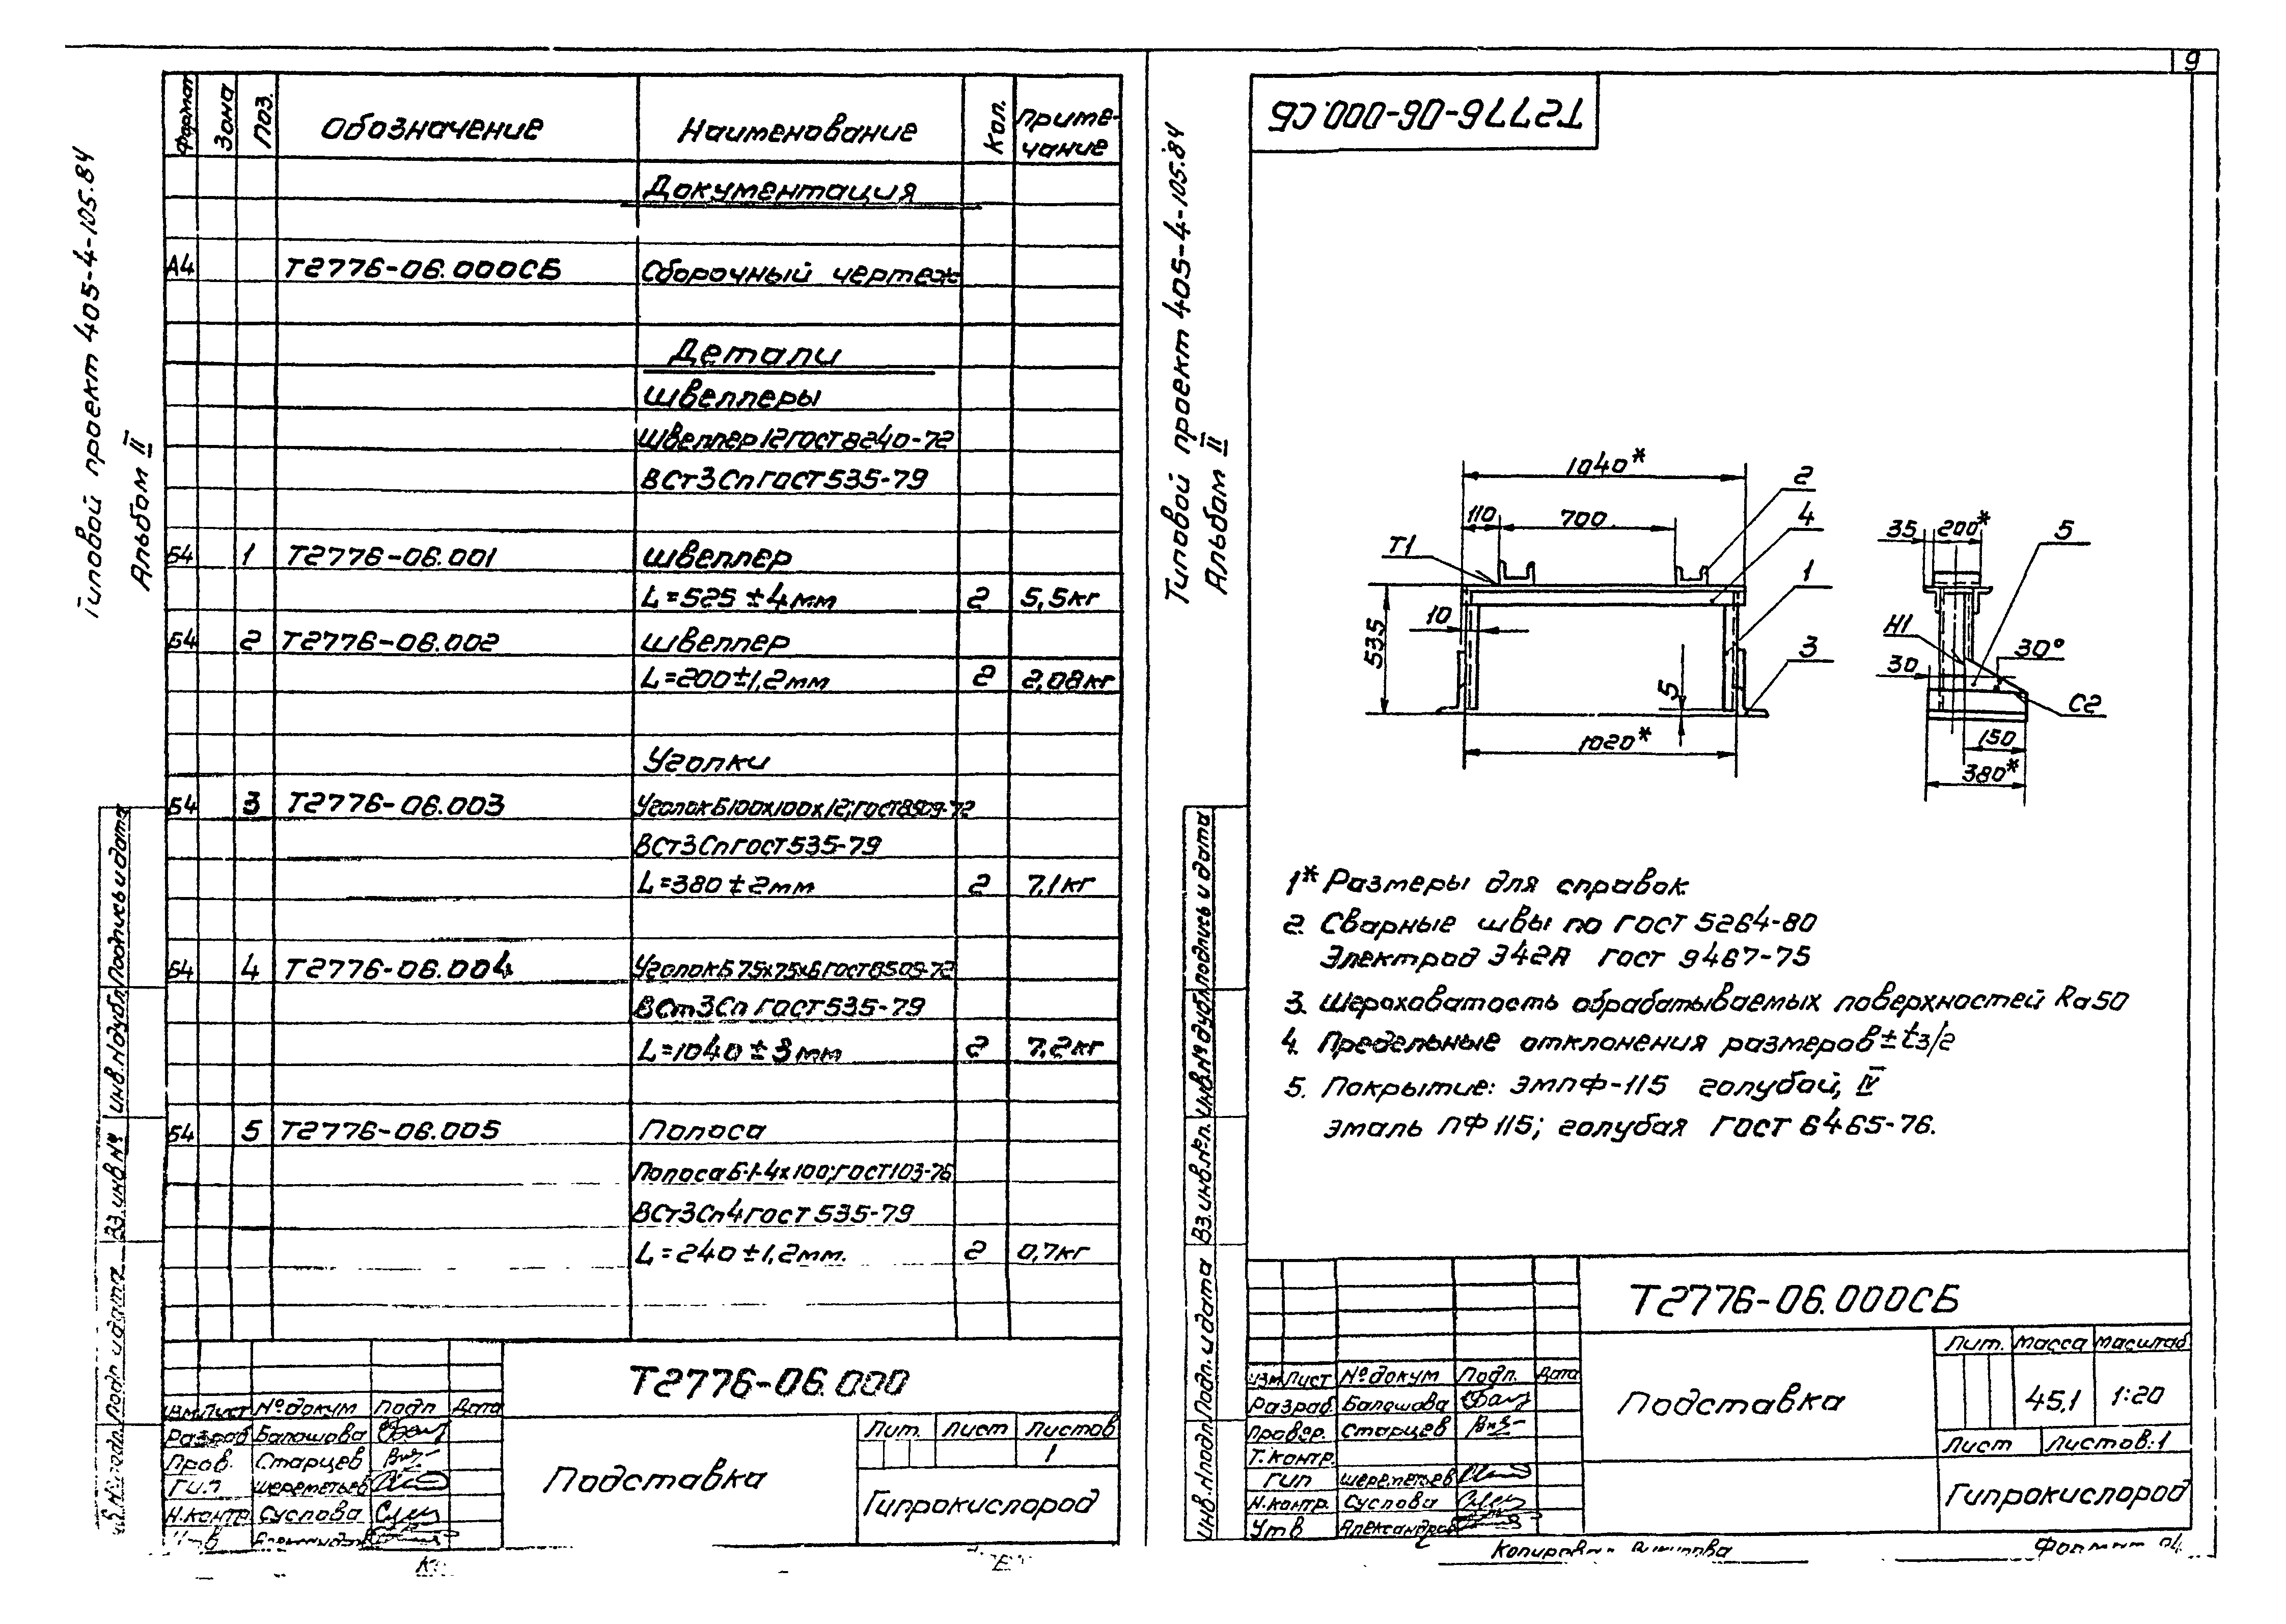 9
Типовой проект 405-4-105.84
Альбом II
Формат Зона Поз. Обозначение Наименование Кол. Приме-
чание
Документация
А4 Т2776-06.000СБ Сборочный чертеж
Детали
Швеллеры
Швеллер 12 ГОСТ 8240-72
ВСт3Сп ГОСТ 535-79
Б4 1 Т2776-06.001 Швеллер
L=525±4мм 2 5,5кг
Б4 2 Т2776-06.002 Швеллер
L=200±1,2мм 2 2,08кг
Уголки
Б4 3 Т2776-06.003 Уголок Б100х100х12; ГОСТ 8509-72
ВСт3Сп ГОСТ 535-79
L=380±2мм 2 7,1кг
Б4 4 Т2776-06.004 Уголок Б75х75х6 ГОСТ 8509-72
ВСт3Сп ГОСТ 535-79
L=1040±3мм 2 7,2кг
Б4 5 Т2776-06.005 Полоса
Полоса Б-1-4х100; ГОСТ 103-76
ВСт3Сп4 ГОСТ 535-79
L=240±1,2мм. 2 0,7кг
Подпись и дата
Инв.№дубл.
Вз.инв.№
Подп. и дата
Т2776-06.000
Изм Лист №докум Подп Дата
Разраб Балашова
Пров. Старцев
ГИП Шереметьев
Н.контр Суслова
Утв
Подставка
Лит. Лист Листов
1
Гипрокислород
Типовой проект 405-4-105.84
Альбом II
Т2776-06-000.СБ
1040*
110 700
2
4
Т1
1
3
535
10
5
1020*
35 200* 5
Н1
30°
30
С2
150
380*
1* Размеры для справок
2. Сварные швы по ГОСТ 5264-80
Электрод Э42А ГОСТ 9467-75
3. Шероховатость обрабатываемых поверхностей Ra50
4. Предельные отклонения размеров ± t3/2
5. Покрытие: ЭМПФ-115 голубой, IV
эмаль ПФ 115; голубая ГОСТ 6465-76.
Подпись и дата
Инв.№дубл.
Вз.инв.№п.
Подп. и дата
Инв.№подл.
Т2776-06.000СБ
Изм Лист №докум Подп. Дата
Разраб. Балашова
Провер. Старцев
Т.контр.
ГИП Шереметьев
Н.контр. Суслова
Утв Александров
Подставка
Лит. Масса Масштаб
45,1 1:20
Лист Листов:1
Гипрокислород